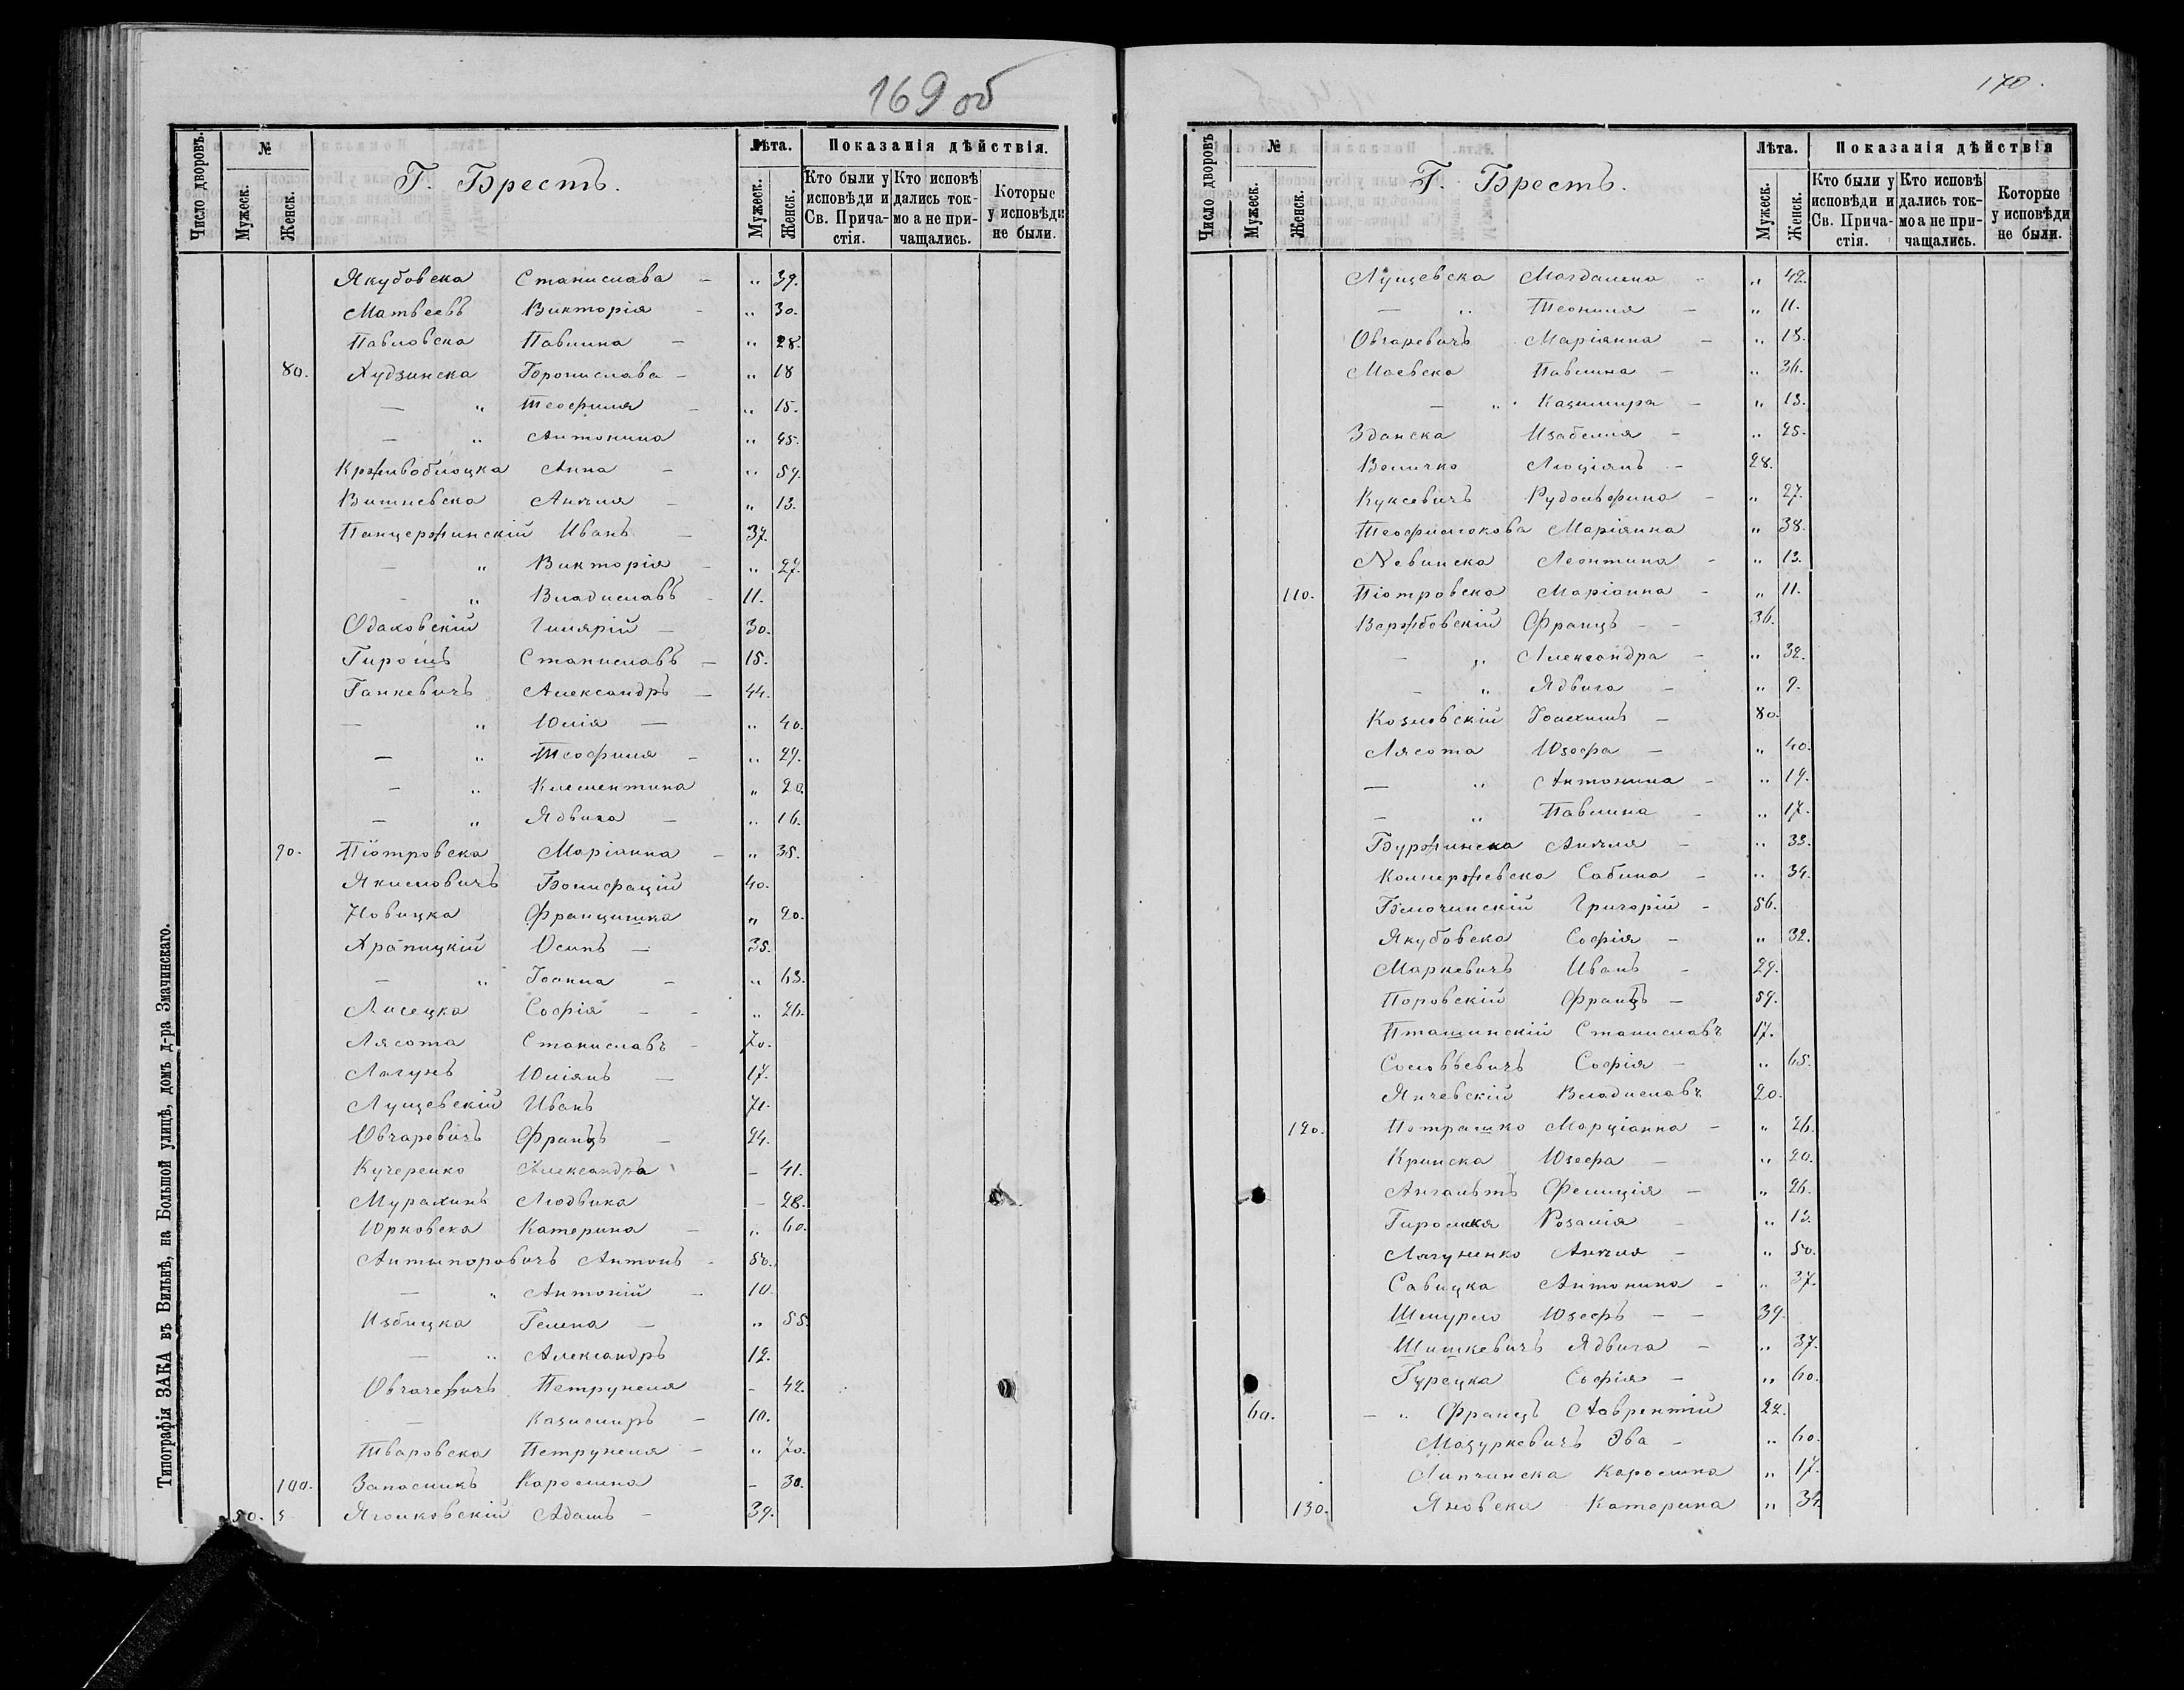 169 об
Число дворовъ.
№
Мужеск.
Женск.
Г. Брестъ.
Лѣта.
Мужеск.
Женск.
Показанія дѣйствія.
Кто были у исповѣди и Св. Прича-стія.
Кто исповѣ дались ток-мо а не при-чащались.
Которые у исповѣди не были.
Якубовска Станислава — „ 39.
Матвеевъ Викторія - „ 30.
Павловска Павлина — „ 28.
80. Худзинска Брониславa — „ 18
— „ Теофиля — „ 15.
— „ Антонина „ 45.
Крживоблоцка Анна — „ 59.
Вишневска Анеля — „ 13.
Панцержинскій Иванъ — 37.
— „ Викторія — „ 27.
— „ Владиславъ - 11.
Одаховскій Гилярій — 30.
Гирошъ Станиславъ — 15.
Ганкевичъ Александръ — 44.
— „ Юлія — „ 40.
— „ Теофиля — „ 29.
— „ Клементина „ 20.
— „ Ядвига — „ 16.
90. Піотровска Маріанна — „ 35.
Якимовичъ Бонифацій 40.
Новицка Францишка „ 20.
Храпицкій Осипъ — 35.
— „ Іоанна — „ 63.
Лисецка Софія — - „ 26.
Лясота Станиславъ - 70.
Лагунъ Юліянъ — 17.
Лущевскій Иванъ 71.
Овчаревичъ Францъ — 24.
Кучеренко Александра — 41.
Мурахинъ Людвика — 28.
Юрковска Катерина — „ 60.
Антыпоровичъ Антонъ - 50.
— „ Антоній — 10.
Избицка Гелена — „ 55.
— „ Александръ 12.
Овчачевичъ Петрунеля - 42.
— Казимиръ — 10.
Тваровска Петрунеля — „ 70.
100. Запасникъ Каролина — 30.
50. Ягомковскій Адамъ — 39.
Типографія ЗАКА въ Вильнѣ, на Большой улицѣ, домъ д-ра Змачинскаго.
170.
Число дворовъ
№
Мужеск.
Женск.
Г. Брестъ.
Лѣта.
Мужеск.
Женск.
Показанія дѣйствія
Кто были у исповѣди и Св. Прича-стія.
Кто исповѣ дались ток-мо а не при-чащались.
Которые у исповѣди не были.
Лущевска Магдалена - „ 42.
— „ Теониля — „ 11.
Овчаревичъ Маріянна — „ 18.
Маевска Павлина — „ 36.
— „ Казимира — „ 13.
Зданска Изабелля — „ 25.
Величко Люціянъ — 28.
Куксевичъ Рудольфина — „ 27.
Теофилюкова Маріянна „ 38.
Невинска Леонтина — „ 13.
110. Піотровска Маріанна - „ 11.
Вержбовскій Францъ - - 36.
— „ Александра — „ 32.
— „ Ядвига — „ 9.
Козловскій Іоахимъ — 80.
Лясота Юзефа — „ 40.
— „ Антонина — „ 19.
— „ Павлина — „ 17.
Буржинска Анеля — „ 33.
Колнержевска Сабина — „ 34.
Блочинскій Григорій - 56.
Якубовска Софія — „ 32.
Маркевичъ Иванъ — 29.
Поровскій Францъ — 59.
Пташинскій Станиславъ 17.
Соловьевичъ Софія — „ 65.
Янчевскій Владиславъ 20.
120. Потрашко Марціанна — „ 26.
Кринска Юзефа — „ 20.
Ангальтъ Фелиція — „ 26.
Розалія — „ 13.
Лягуненко Анеля — „ 50.
Савицка Антонина — „ 37.
Шмурло Юзефъ — — 39.
Шишкевичъ Ядвига — „ 37.
Гурецка Софія — „ 60.
60. — „ Францъ Лаврентій 22.
Мазуркевичъ Эва — „ 60.
Липчинска Каролина „ 17.
130. Яновска Катерина „ 34.